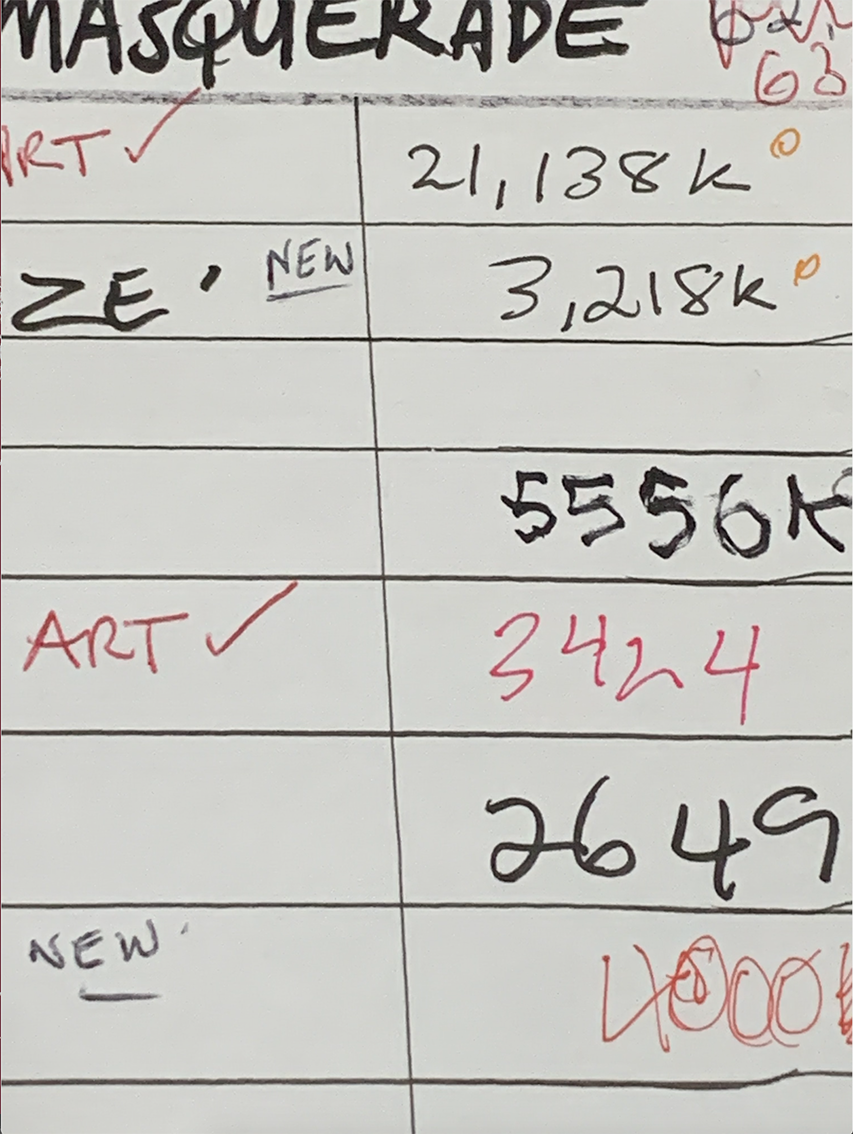 MASQUERADE
63
ART ✓ 21,138K
ZE' NEW 3,218K
5556K
ART ✓ 3424
2649
NEW